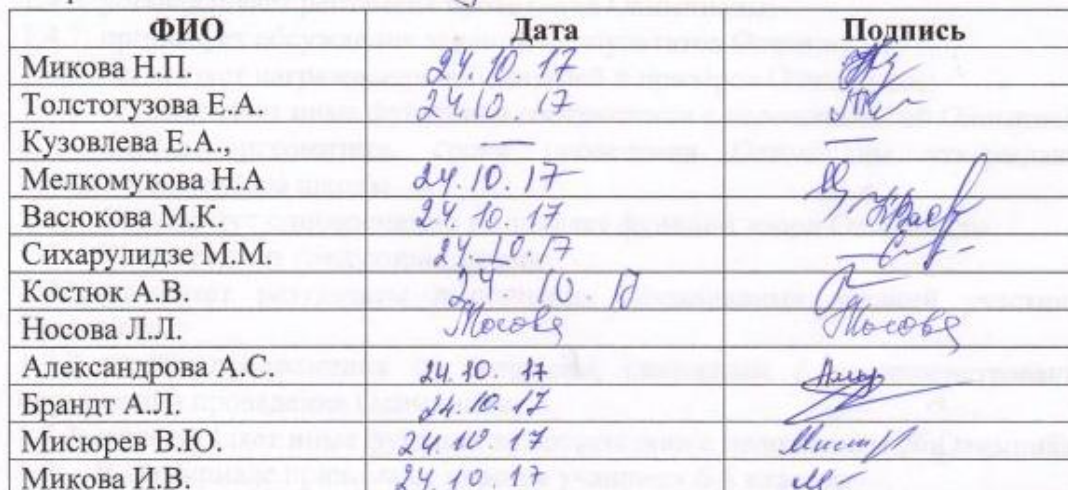 ФИО Дата Подпись
Микова Н.П. 24.10.17
Толстогузова Е.А. 24.10.17
Кузовлева Е.А., — —
Мелкомукова Н.А 24.10.17
Васюкова М.К. 24.10.17
Сихарулидзе М.М. 24.10.17
Костюк А.В. 24 10. 17
Носова Л.Л. Носова Носова
Александрова А.С. 24.10.17
Брандт А.Л. 24.10.17
Мисюрев В.Ю. 24.10.17
Микова И.В. 24.10.17